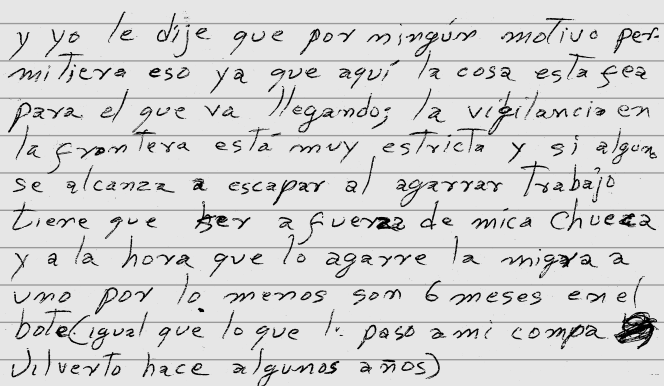 y yo le dije que por ningún motivo per-
mitiera eso ya que aquí la cosa esta fea
para el que va llegando; la vigilancia en
la frontera está muy estricta y si alguno
se alcanza a escapar al agarrar trabajo
tiene que ser a fuerza de mica chueca
y a la hora que lo agarre la migra a
uno por lo menos son 6 meses en el
bote (igual que lo que le paso a mi compa
Jilverto hace algunos años)